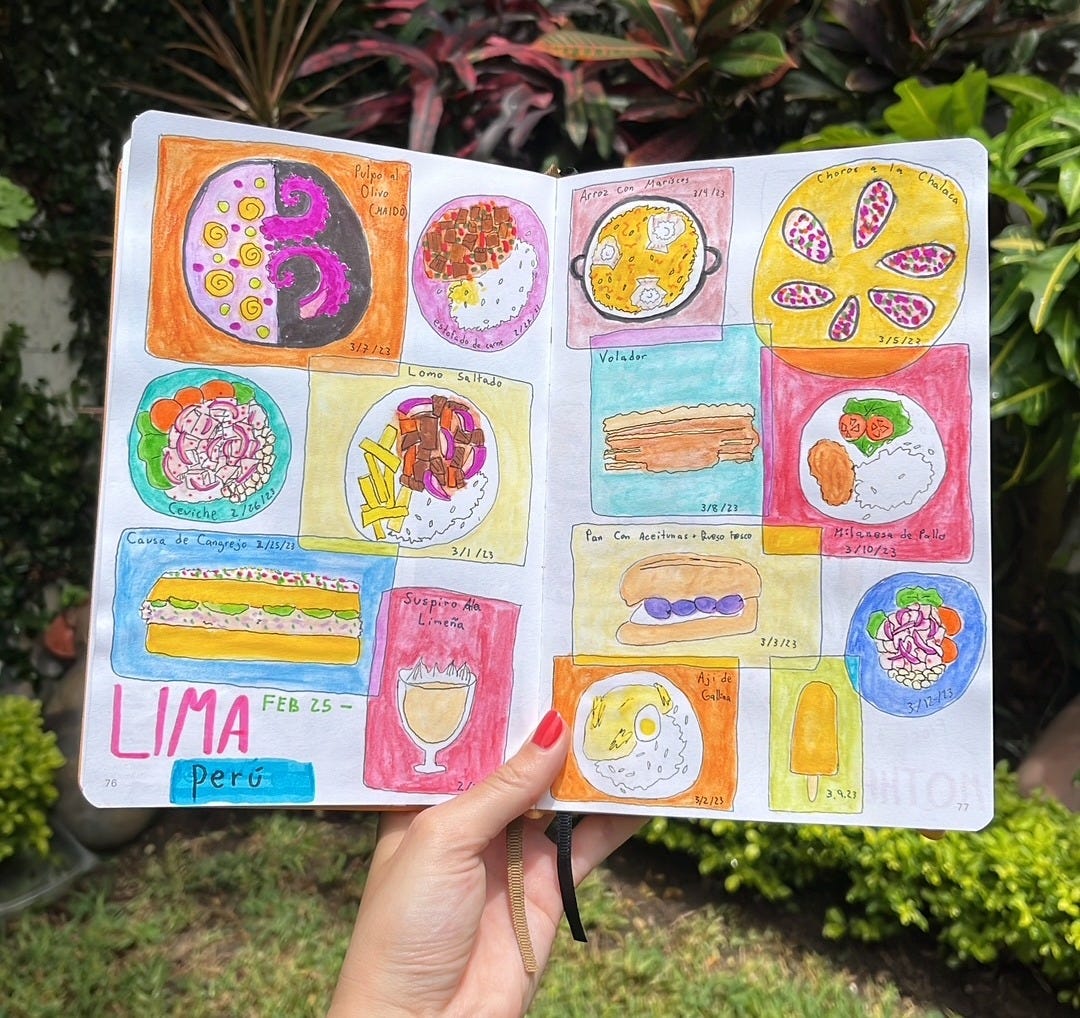 Pulpo al
Olivo
(MAIDO)
3/7/23
Estofado de carne 2/28/23
Lomo Saltado
3/1/23
Ceviche 2/26/23
Causa de Cangrejo 2/25/23
Suspiro Ala
Limeña
2/
LIMA
FEB 25 -
perú
76
Arroz Con Mariscos
3/4/23
Choros a la Chalaca
3/5/23
Volador
3/8/23
Milanesa de Pollo
3/10/23
Pan Con Aceitunas + Queso Fresco
3/3/23
Aji de
Gallina
3/2/23
3.9.23
3/12/23
77